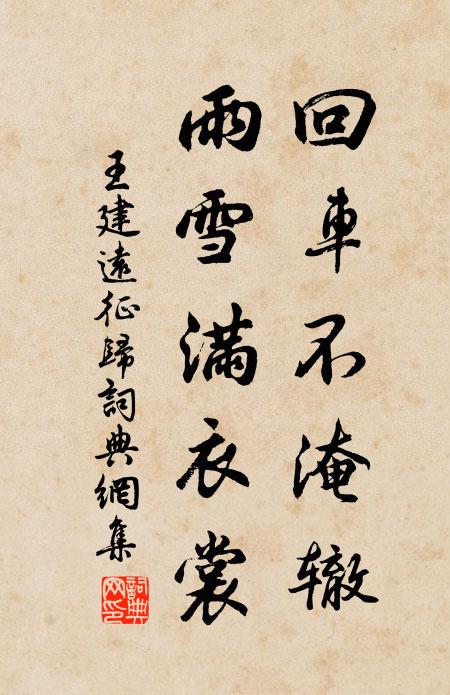 回車不淹辙
雨雪滿衣裳
王建遠征歸詞典網集
詞典
网印